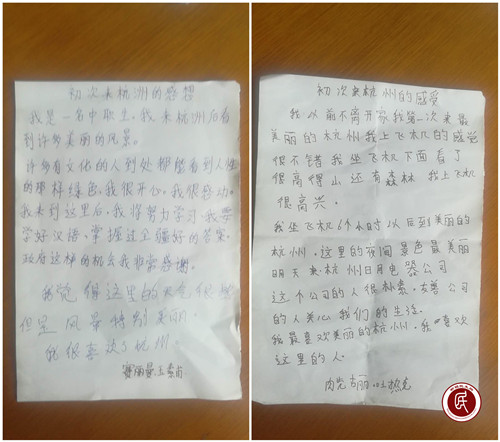 初次来杭州的感想
我是一名中职生,我来杭州后看
到许多美丽的风景。
许多有文化的人到处都能看到人性
的那样绿色我很开心。我很感动。
我来到这里后,我将努力学习。我要
学好汉语,掌握过全疆好的答案,
政府这样的机会我非常感谢。
我觉得这里的天气很热
但是风景特别美丽.
我很喜欢杭州.
初次来杭州的感受
我以前不离开家我第一次来最
美丽的杭州我上飞机的感觉
很不错我坐飞机下面看了
很高得山还有森林 我上飞机
很高兴.
我坐飞机6个小时以后到美丽的
杭州.这里的夜间景色最美丽
明天来杭州日月电器公司
这个公司的人很朴素.友善 公司
的人关心我们的生活.
我最喜欢美丽的杭州.我喜欢
这里的人.